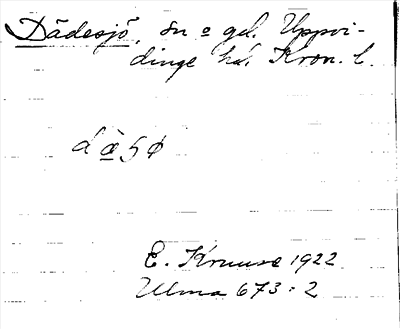 Dädesjö, sn o gd. Uppvi-
dinge hd. Kron. l.
E. Kruuse 1922
Ulma 673:2